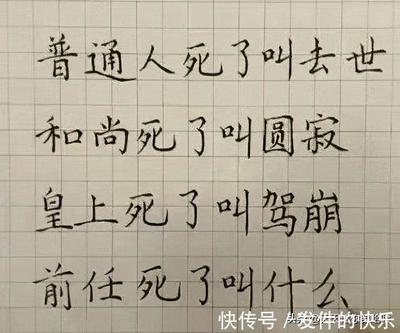 普通人死了叫去世
和尚死了叫圆寂
皇上死了叫驾崩
前任死了叫什么
快传号/发件的快乐